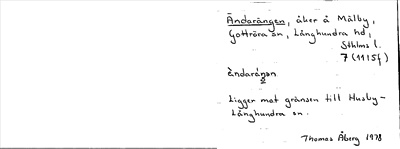 Ändarängen, åker å Mälby,
Gottröra sn, Långhundra hd,
Sthlms l.
7 (1115f)
Ligger mot gränsen till Husby-
Långhundra sn.
Thomas Åberg 1978